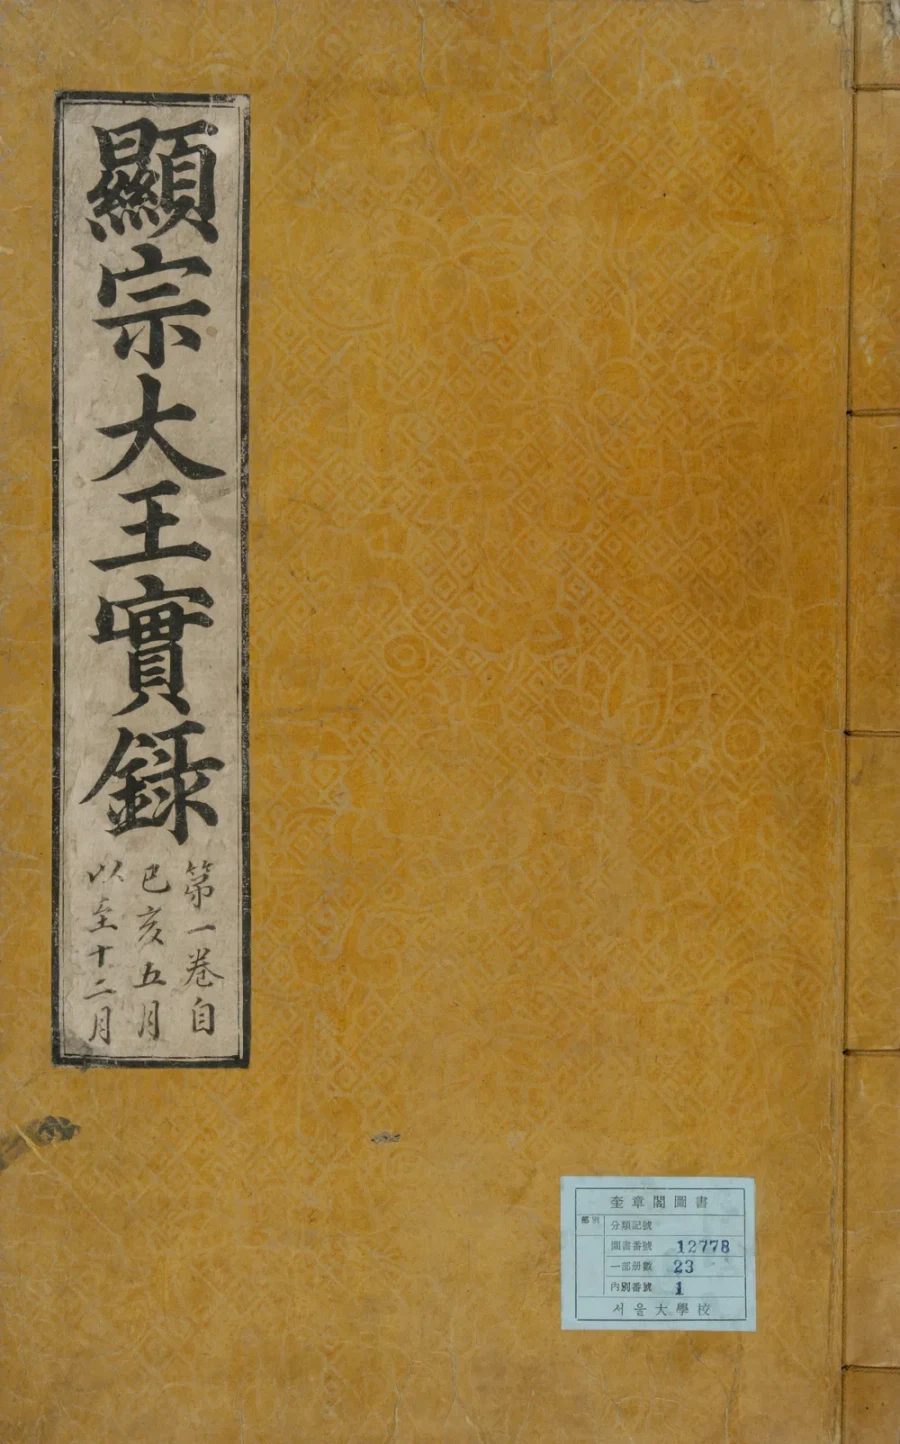 顯宗大王實錄
第一卷自
己亥五月
以至十二月
奎章閣圖書
部別
分類記號
圖書番號 12778
一部册數 23
內別番號 1
서울大學校